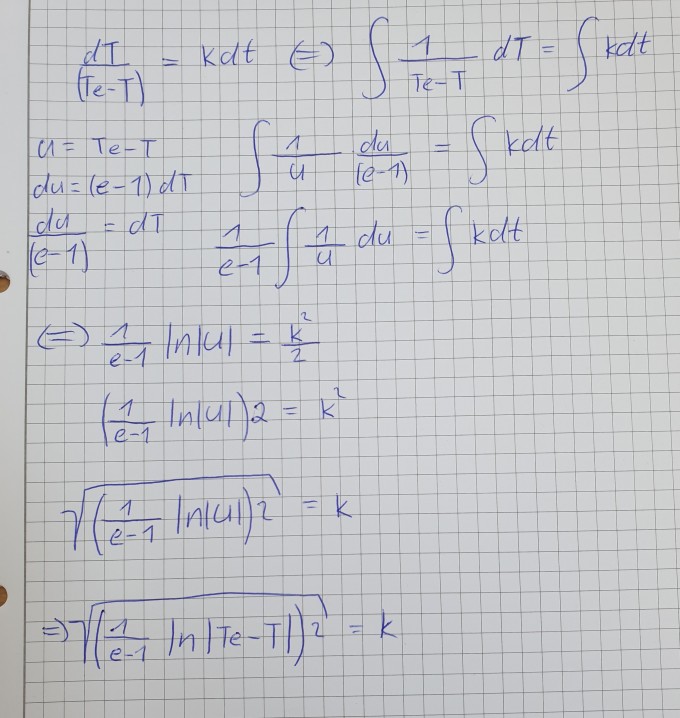 dT/(Te-T) = kdt ⇔ ∫ 1/(Te-T) dT = ∫ kdt
u = Te-T ∫ 1/u du/(e-1) = ∫ kdt
du = (e-1) dT
du/(e-1) = dT 1/(e-1) ∫ 1/u du = ∫ kdt
⇔ 1/(e-1) ln|u| = k²/2
(1/(e-1) ln|u|)2 = k²
√((1/(e-1) ln|u|)2) = k
⇒ √((1/(e-1) ln|Te-T|)2) = k